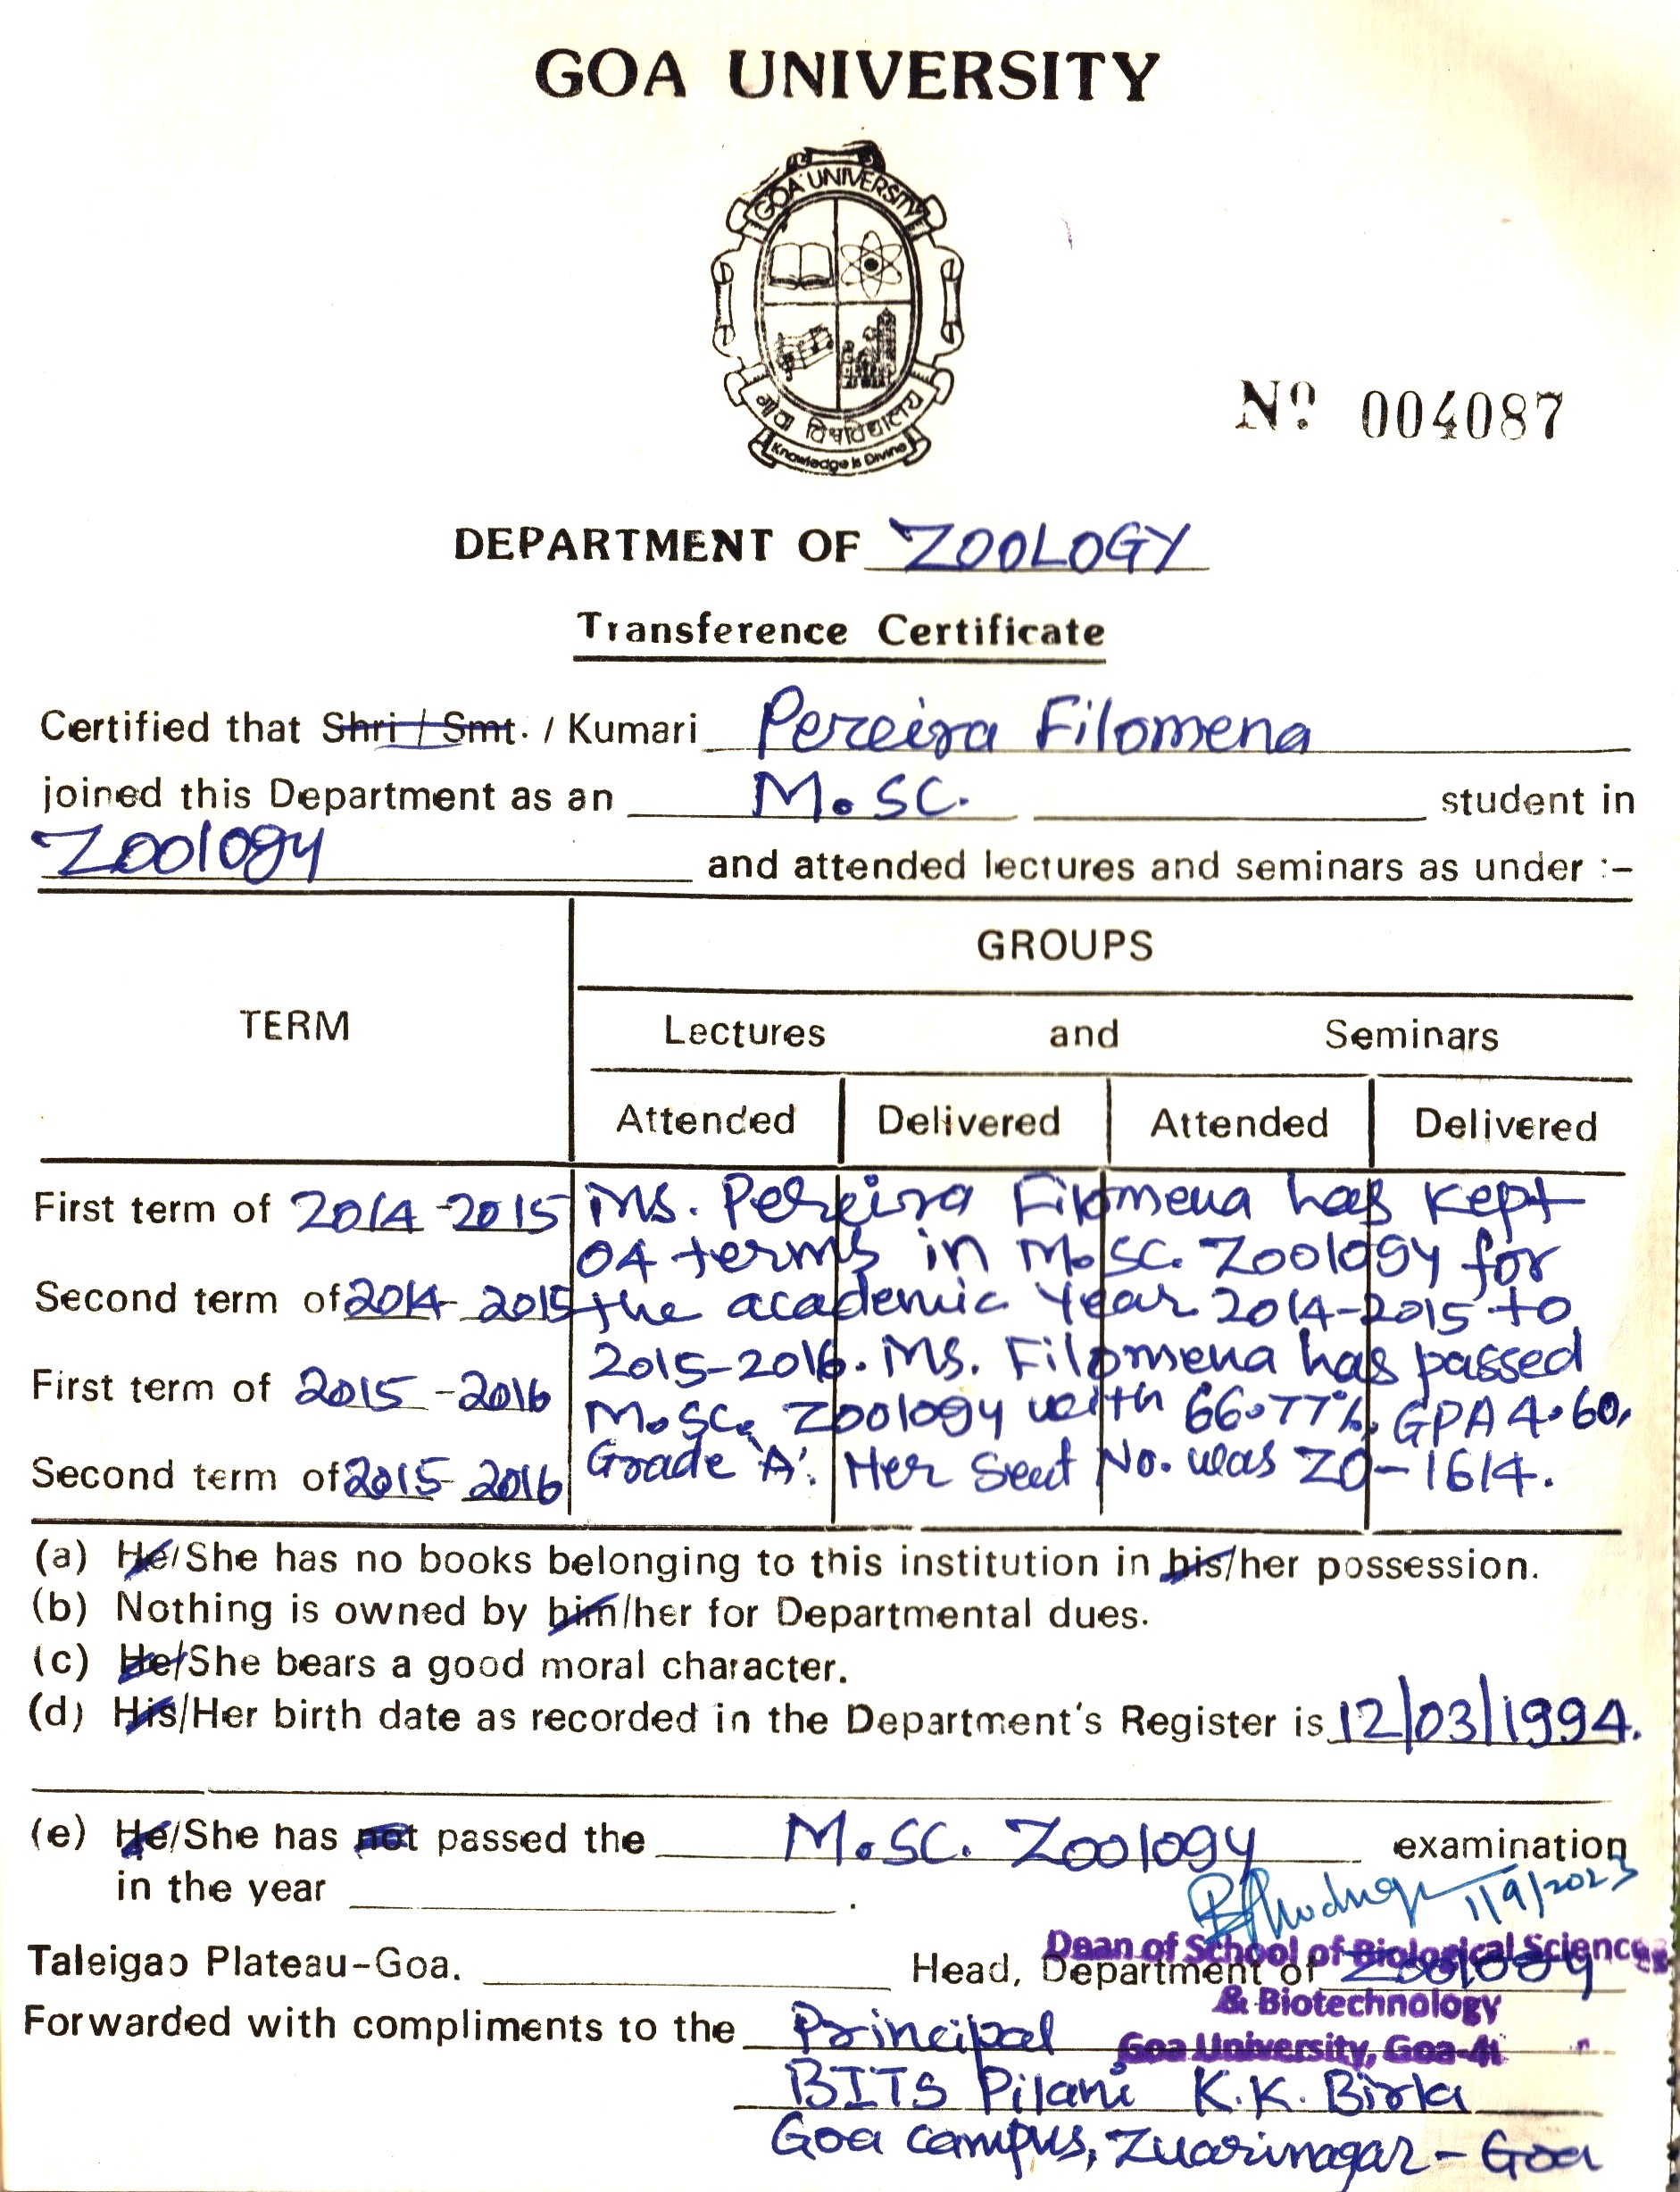 GOA UNIVERSITY
GOA UNIVERSITY
गोवा विश्वविद्यालय
Knowledge is Divine
Nº 004087
DEPARTMENT OF ZOOLOGY
Transference Certificate
Certified that Shri / Smt. / Kumari Pereira Filomena
joined this Department as an M.SC. student in
Zoology and attended lectures and seminars as under :-
GROUPS
TERM
Lectures and Seminars
Attended Delivered Attended Delivered
First term of 2014-2015 Ms. Pereira Filomena has kept
04 terms in M.SC. Zoology for
Second term of 2014-2015 the academic Year 2014-2015 to
2015-2016. Ms. Filomena has passed
First term of 2015-2016
M.SC. Zoology with 66.77%, GPA 4.60,
Second term of 2015-2016 Grade 'A'. Her Seat No. was ZO-1614.
(a) He/She has no books belonging to this institution in his/her possession.
(b) Nothing is owned by him/her for Departmental dues.
(c) He/She bears a good moral character.
(d) His/Her birth date as recorded in the Department's Register is 12/03/1994.
(e) He/She has not passed the M.SC. Zoology examination
in the year .
1/9/2023
Dean of School of Biological Sciences
Taleigao Plateau-Goa. Head, Department of Zoology
& Biotechnology
Forwarded with compliments to the Principal
Goa University, Goa-
BITS Pilani K.K. Birla
Goa campus, Zuarinagar - Goa